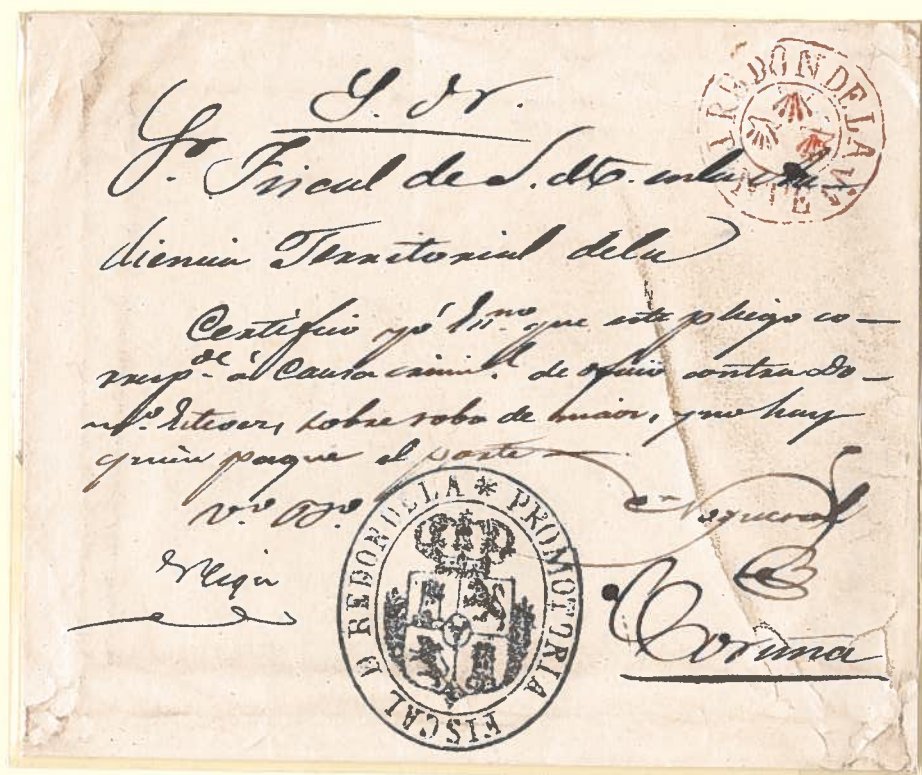 S. N.
REDONDELA
Sr. Fiscal de S. M. en la Au-
diencia Territorial de la
Certifico yó Ess.no que este pliego co-
rresp.de á causa crimin.l de oficio contra Do-
m.o Estever, sobre robo de maior, y no hay
quien pague el porte
V.o B.o
Noguerol
Coruña
PROMOTORIA FISCAL DE REDONDELA